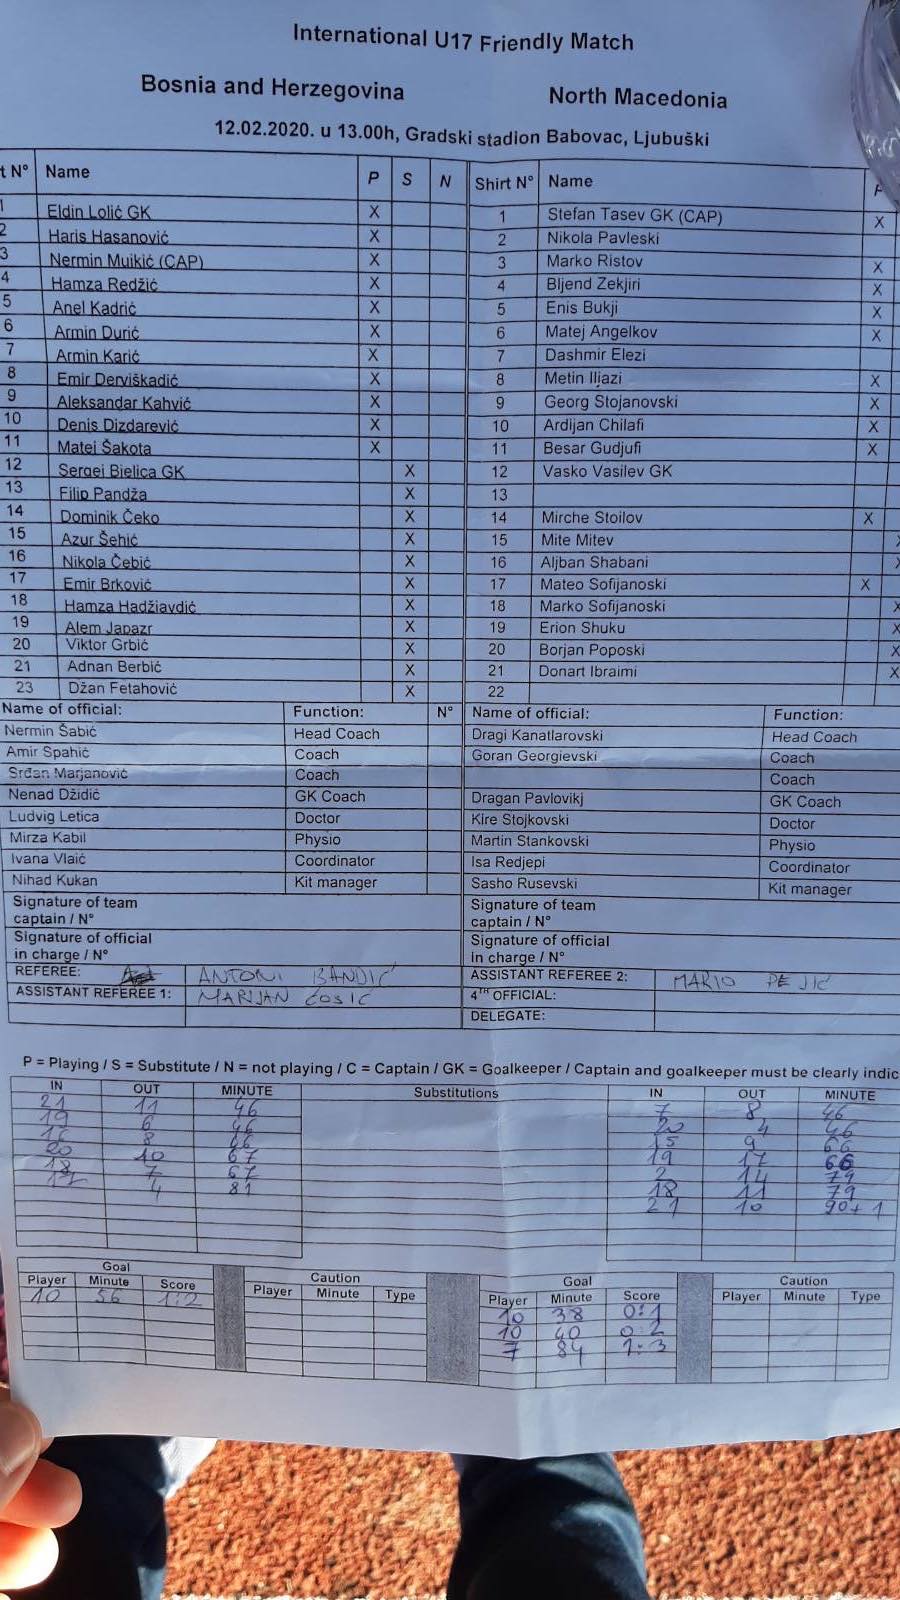 International U17 Friendly Match
Bosnia and Herzegovina North Macedonia
12.02.2020. u 13.00h, Gradski stadion Babovac, Ljubuški
t N° Name P S N Shirt N° Name P
1 Eldin Lolić GK X 1 Stefan Tasev GK (CAP) X
2 Haris Hasanović X 2 Nikola Pavleski
3 Nermin Mujkić (CAP) X 3 Marko Ristov X
4 Hamza Redžić X 4 Bljend Zekjiri X
5 Anel Kadrić X 5 Enis Bukji X
6 Armin Durić X 6 Matej Angelkov X
7 Armin Karić X 7 Dashmir Elezi
8 Emir Derviškadić X 8 Metin Iljazi X
9 Aleksandar Kahvić X 9 Georg Stojanovski X
10 Denis Dizdarević X 10 Ardijan Chilafi X
11 Matej Šakota X 11 Besar Gudjufi X
12 Sergej Bjelica GK X 12 Vasko Vasilev GK
13 Filip Pandža X 13
14 Dominik Čeko X 14 Mirche Stoilov X
15 Azur Šehić X 15 Mite Mitev X
16 Nikola Čebić X 16 Aljban Shabani X
17 Emir Brković X 17 Mateo Sofijanoski X
18 Hamza Hadžiavdić X 18 Marko Sofijanoski X
19 Alem Japazr X 19 Erion Shuku X
20 Viktor Grbić X 20 Borjan Poposki X
21 Adnan Berbić X 21 Donart Ibraimi X
23 Džan Fetahović X 22
Name of official: Function: N° Name of official: Function:
Nermin Šabić Head Coach Dragi Kanatlarovski Head Coach
Amir Spahić Coach Goran Georgievski Coach
Srđan Marjanović Coach Coach
Nenad Džidić GK Coach Dragan Pavlovikj GK Coach
Ludvig Letica Doctor Kire Stojkovski Doctor
Mirza Kabil Physio Martin Stankovski Physio
Ivana Vlaić Coordinator Isa Redjepi Coordinator
Nihad Kukan Kit manager Sasho Rusevski Kit manager
Signature of team captain / N° Signature of team captain / N°
Signature of official in charge / N° Signature of official in charge / N°
REFEREE: ANTONI BANDIĆ ASSISTANT REFEREE 2: MARIO PEJIĆ
ASSISTANT REFEREE 1: MARIJAN ĆOSIĆ 4TH OFFICIAL:
DELEGATE:
P = Playing / S = Substitute / N = not playing / C = Captain / GK = Goalkeeper / Captain and goalkeeper must be clearly indic
IN OUT MINUTE Substitutions IN OUT MINUTE
21 11 46 7 8 46
19 6 46 20 4 46
16 8 46 15 9 66
20 10 67 19 17 66
18 7 67 2 14 79
4 81 18 11 79
21 10 90+1
Goal Caution Goal Caution
Player Minute Score Player Minute Type Player Minute Score Player Minute Type
10 56 1:2 10 38 0:1
10 40 0:2
7 84 1:3